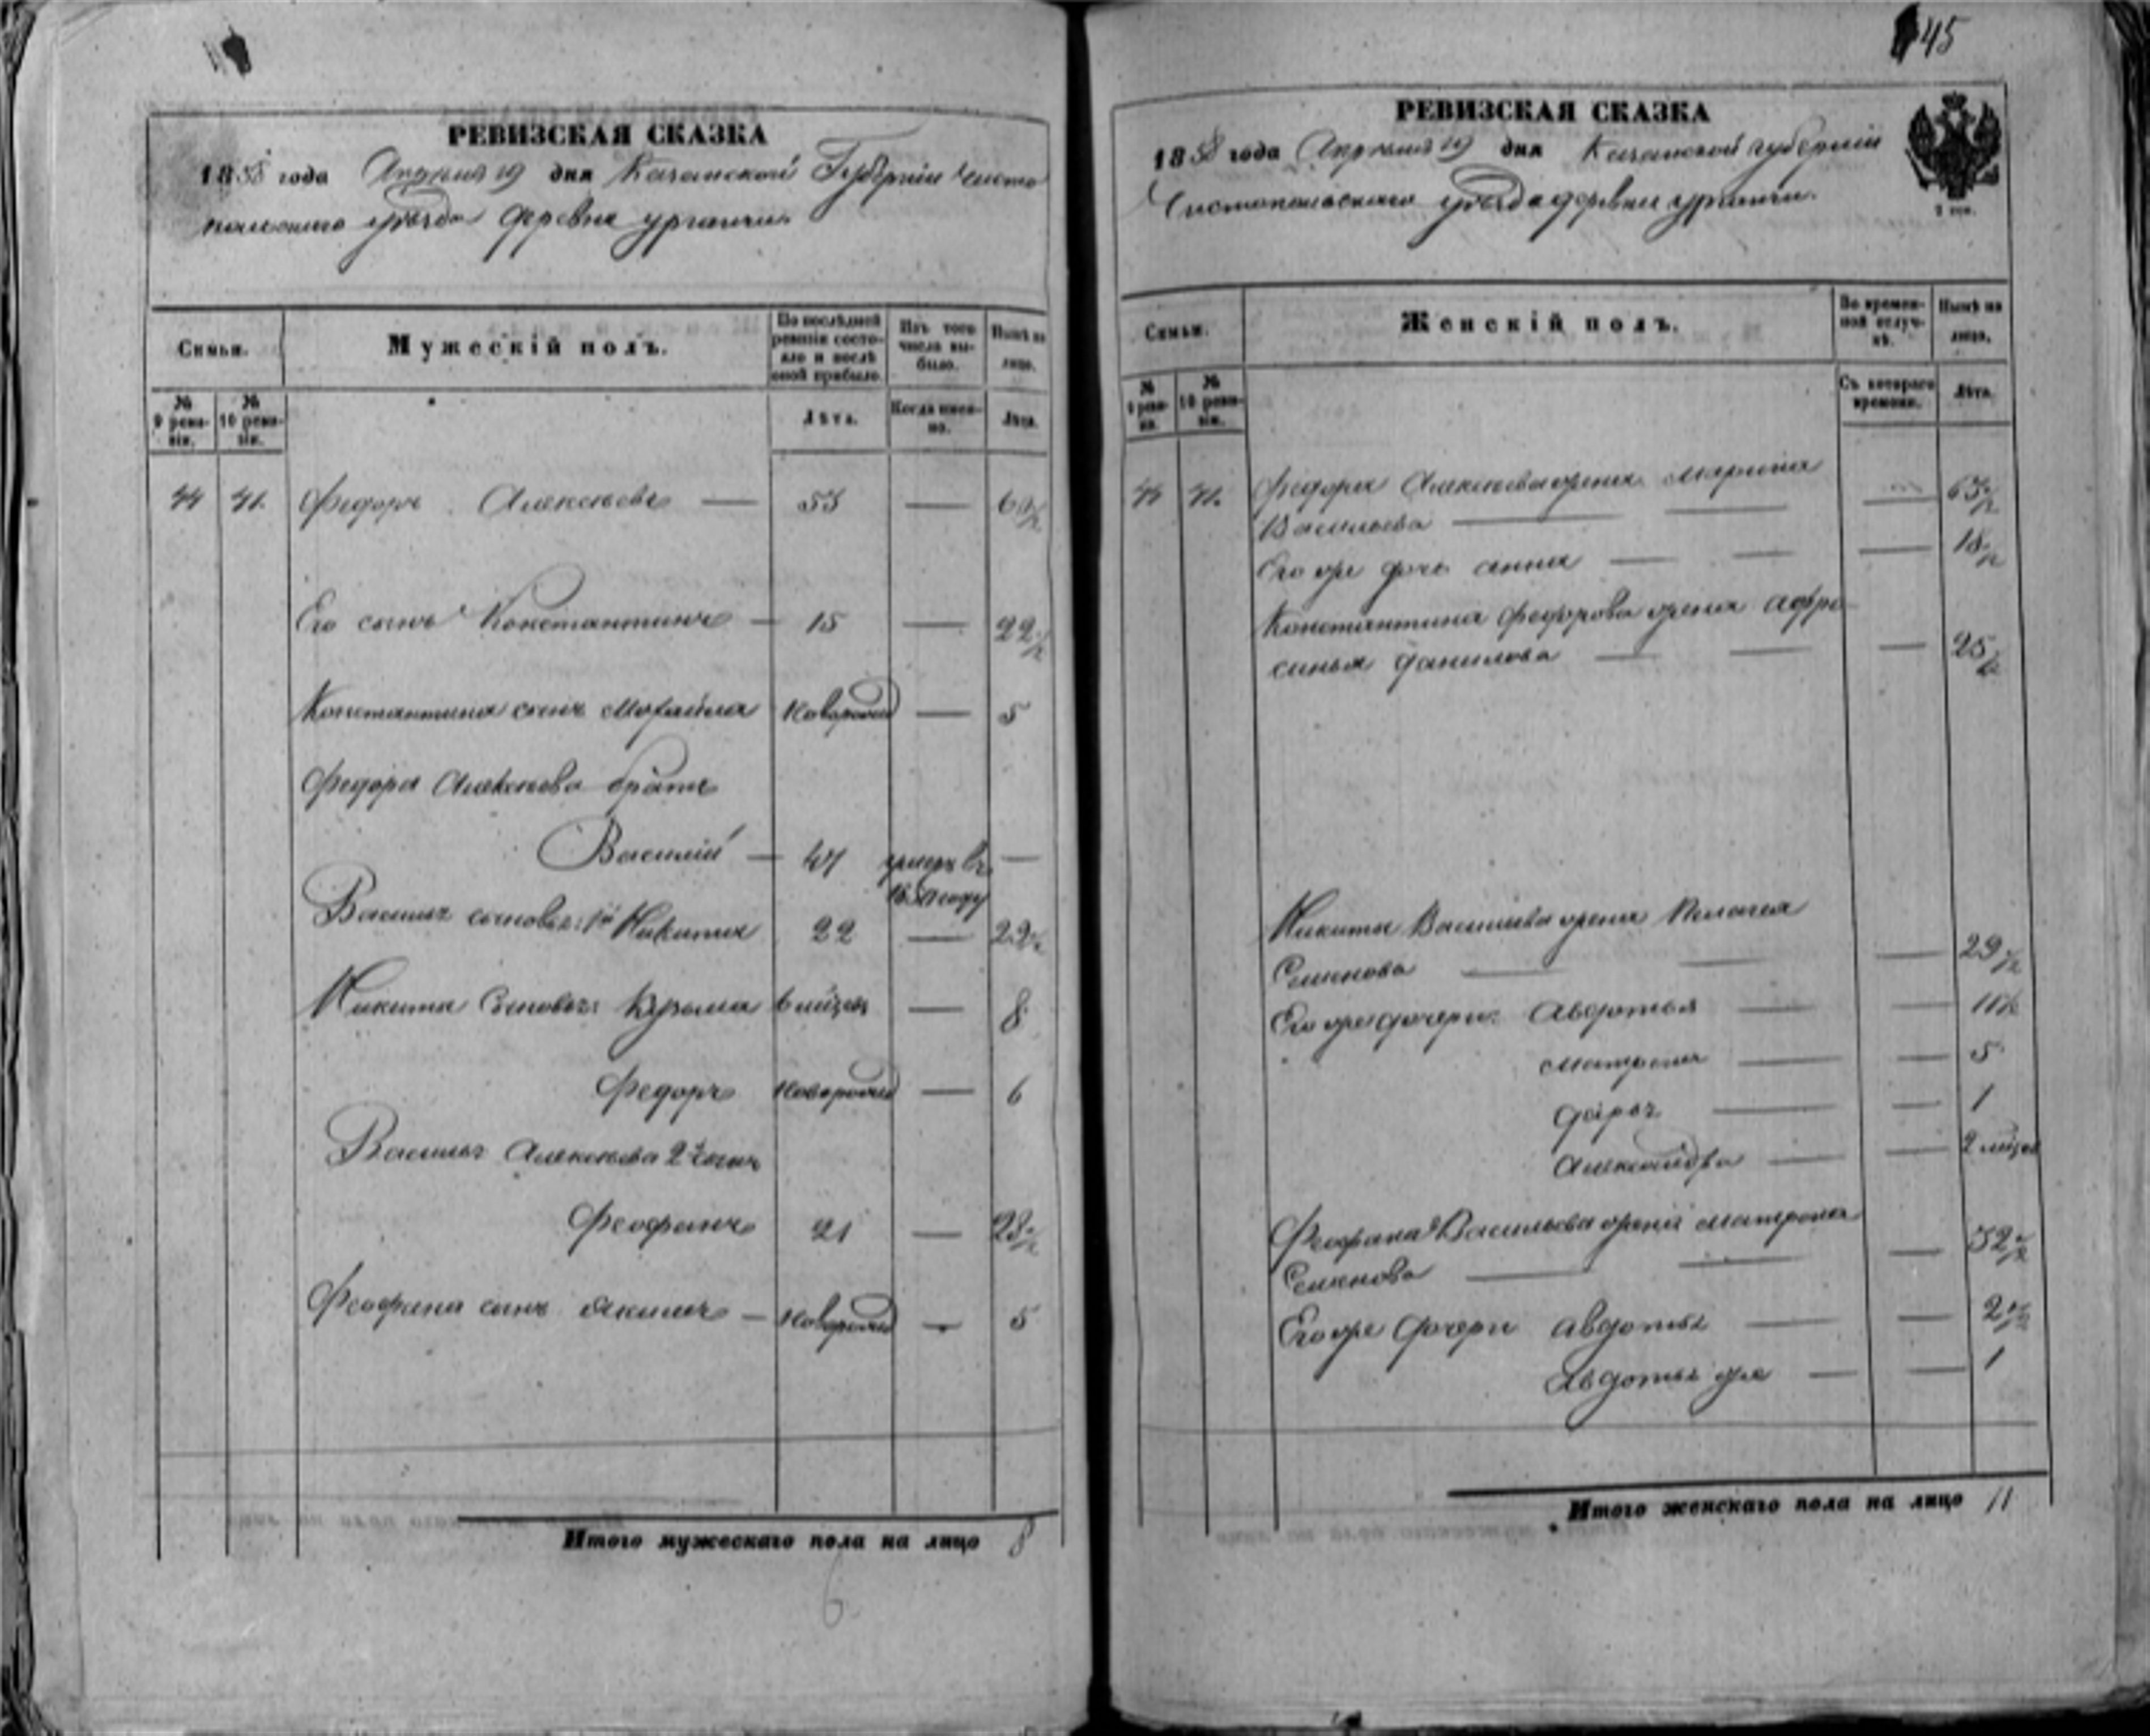 РЕВИЗСКАЯ СКАЗКА
1858 года Апреля 19 дня Казанской Губернии Чисто
польскаго уезда деревне урганчи
Семьи.
Мужескій полъ.
По послѣдней ревизіи состояло и послѣ оной прибыло.
Изъ того числа выбыло.
Нынѣ на лицо.
№ 9 ревизіи.
№ 10 ревизіи.
Лѣта.
Когда именно.
Лѣта.
44 41. Федоръ Алексѣевъ — 55 — 62½
Его сынъ Константинъ — 15 — 22½
Константина сынъ Михаила новорожд — 5
Федора Алексѣева братъ
Василій — 47 умеръ въ —
1850 году
Василья сыновья: 1й Никита 22 — 29½
Никиты Сыновья: Кузьма 6 мѣсяц — 8
Федоръ новорожд — 6
Василья Алексѣева 2й сынъ
Феофанъ 21 — 28½
Феофана сынъ Якимъ — новорожд — 5
Итого мужескаго пола на лицо 8
6
45
РЕВИЗСКАЯ СКАЗКА
1858 года Апреля 19 дня Казанской губерніи
Чистопольскаго уезда деревни урганчи.
2 коп.
Семьи.
Женскій полъ.
Во временной отлучкѣ.
Нынѣ на лицо.
№ 9 ревизіи.
№ 10 ревизіи.
Съ котораго времени.
Лѣта.
44 41. Федора Алексѣева жена Марина
Васильева — — — 63½
Его же дочь анна — — — 18½
Константина Федорова жена Афро
синья Данилова — — — 25½
Никиты Васильева жена Пелагея
Семенова — — — 29½
Его же дочери: Авдотья — — 11½
Матрена — — 5
Дарья — — 1
Александра — — 2 мѣсяц
Феофана Васильева жена Матрона
Семенова — — — 32½
Его же Дочери Авдотья — — 2½
Авдотья же — — 1
Итого женскаго пола на лицо 11